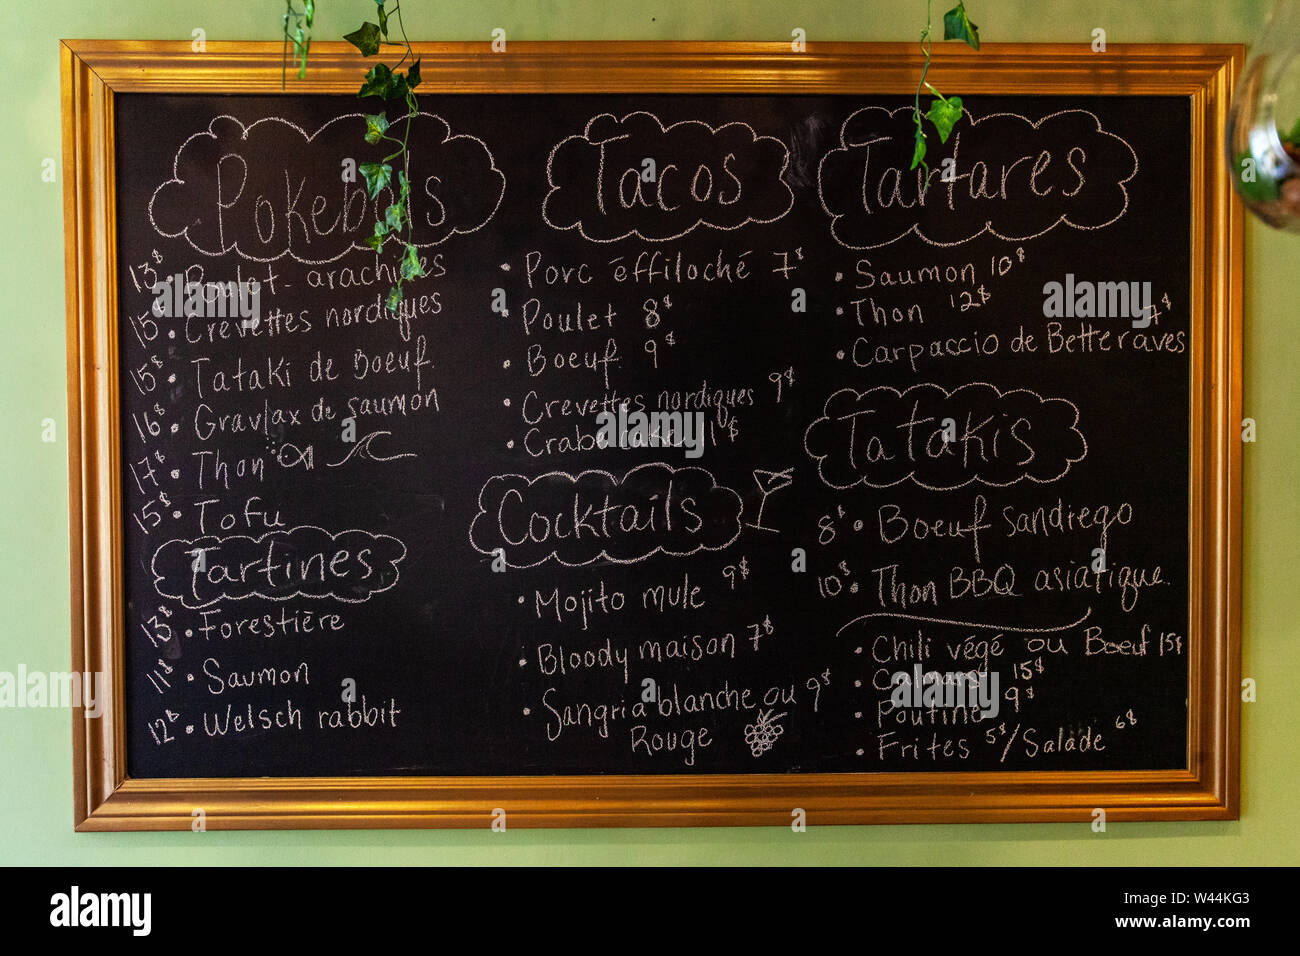 Pokebols
13$ • Poulet arachides
15$ • Crevettes nordiques
15$ • Tataki de Boeuf
16$ • Gravlax de saumon
17$ • Thon
15$ • Tofu
Tartines
13$ • Forestière
11$ • Saumon
12$ • Welsch rabbit
Tacos
• Porc éffiloché 7$
• Poulet 8$
• Boeuf 9$
• Crevettes nordiques 9$
• Crabe cake 11$
Cocktails
• Mojito mule 9$
• Bloody maison 7$
• Sangria blanche ou 9$
Rouge
Tartares
• Saumon 10$
• Thon 12$
• Carpaccio de Betteraves 7$
Tatakis
8$ • Boeuf Sandiego
10$ • Thon BBQ asiatique
• Chili végé ou Boeuf 15$
• Calmars 15$
• Poutine 9$
• Frites 5$/Salade 6$
alamy
alamy
alamy
Image ID: W44KG3
www.alamy.com